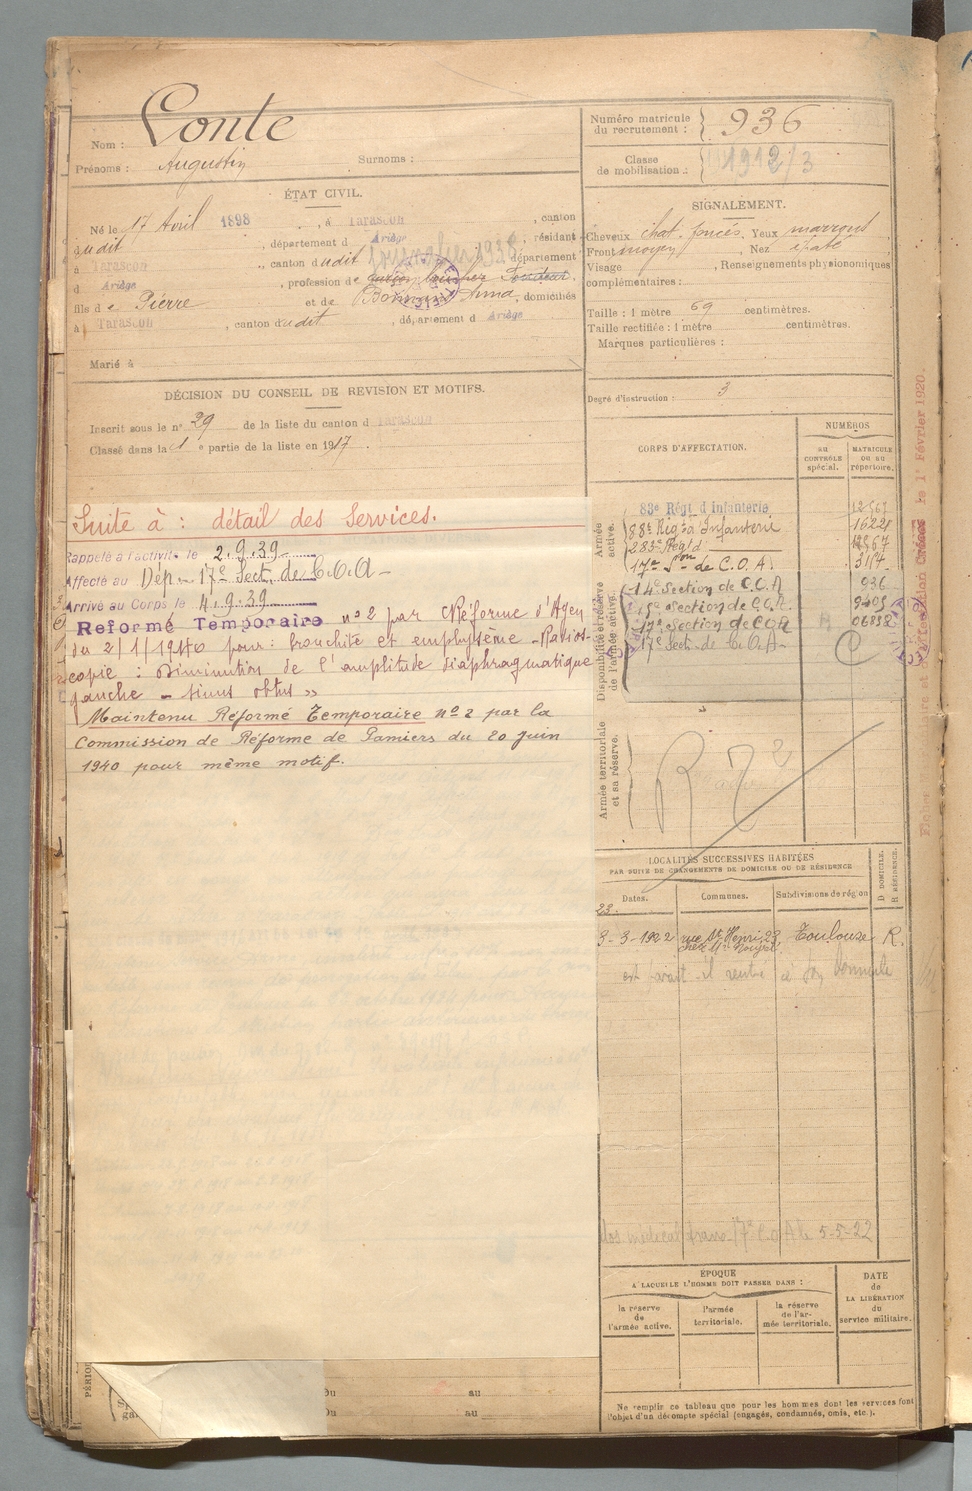 Nom : Conte
Prénoms : Augustin Surnoms :
Numéro matricule du recrutement : 936
Classe de mobilisation : 1912/3
ÉTAT CIVIL.
Né le 17 Avril 1898, à Tarascon, canton
dudit, département d Ariège, résidant
à Tarascon, canton dudit département
d Ariège, profession de garçon boucher
fils de Pierre et de Anna, domiciliés
à Tarascon, canton dudit, département d Ariège
Marié à
SIGNALEMENT.
Cheveux chat. foncés, Yeux marrons
Front moyen, Nez épaté
Visage, Renseignements physionomiques
complémentaires :
Taille : 1 mètre 69 centimètres.
Taille rectifiée : 1 mètre centimètres.
Marques particulières :
Degré d'instruction : 3
DÉCISION DU CONSEIL DE REVISION ET MOTIFS.
Inscrit sous le n° 29 de la liste du canton d Tarascon
Classé dans la 1e partie de la liste en 1917.
Suite à : détail des Services.
Rappelé à l'activité le 2.9.39
Affecté au Dép. 17e Sect. de C.O.A-
Arrivé au Corps le 4.9.39
Reformé Temporaire n°2 par C Réforme d'Agen
du 2/1/1940 pour : bronchite et emphysème - Radios-
copie : Diminution de l'amplitude diaphragmatique
gauche - sinus obtus »
Maintenu Réformé Temporaire n° 2 par la
Commission de Réforme de Pamiers du 20 Juin
1940 pour même motif.
CORPS D'AFFECTATION.
NUMÉROS
AU CONTRÔLE spécial.
MATRICULE OU AU répertoire.
Armée active.
83e Régt d'Infanterie
88e Régt d'Infanterie 16221
283e Régt d
17e Son de C.O.A
Disponibilité et réserve de l'armée active.
14e Section de C.O.A. 936
Section de C.O.A.
17e Section de C.O.A 06838
17e Sect. de C.O.A-
Armée territoriale et sa réserve.
LOCALITÉS SUCCESSIVES HABITÉES
PAR SUITE DE CHANGEMENTS DE DOMICILE OU DE RÉSIDENCE
Dates. Communes. Subdivisions de région D DOMICILE. R RÉSIDENCE.
3-3-1922 rue St Henri 23 Toulouse R.
à son domicile
dos médical trans 17e C.O.A le 5-5-22
ÉPOQUE
A LAQUELLE L'HOMME DOIT PASSER DANS :
la réserve de l'armée active.
l'armée territoriale.
la réserve de l'armée territoriale.
DATE de LA LIBÉRATION du service militaire.
Du au
Du au
Ne remplir ce tableau que pour les hommes dont les services font
l'objet d'un décompte spécial (engagés, condamnés, omis, etc.).